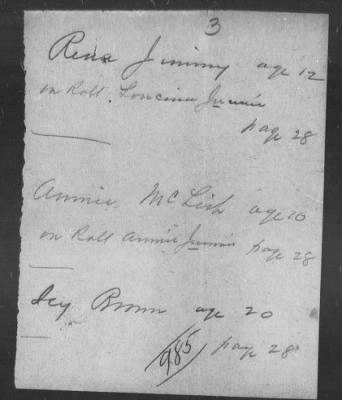 3
Rena Jimmy age 12
on Roll. Loucina Jimmie
page 28
Annie McLish age 10
on Roll Annie Jimmie page 28
Icy Brown age 20
985 page 28